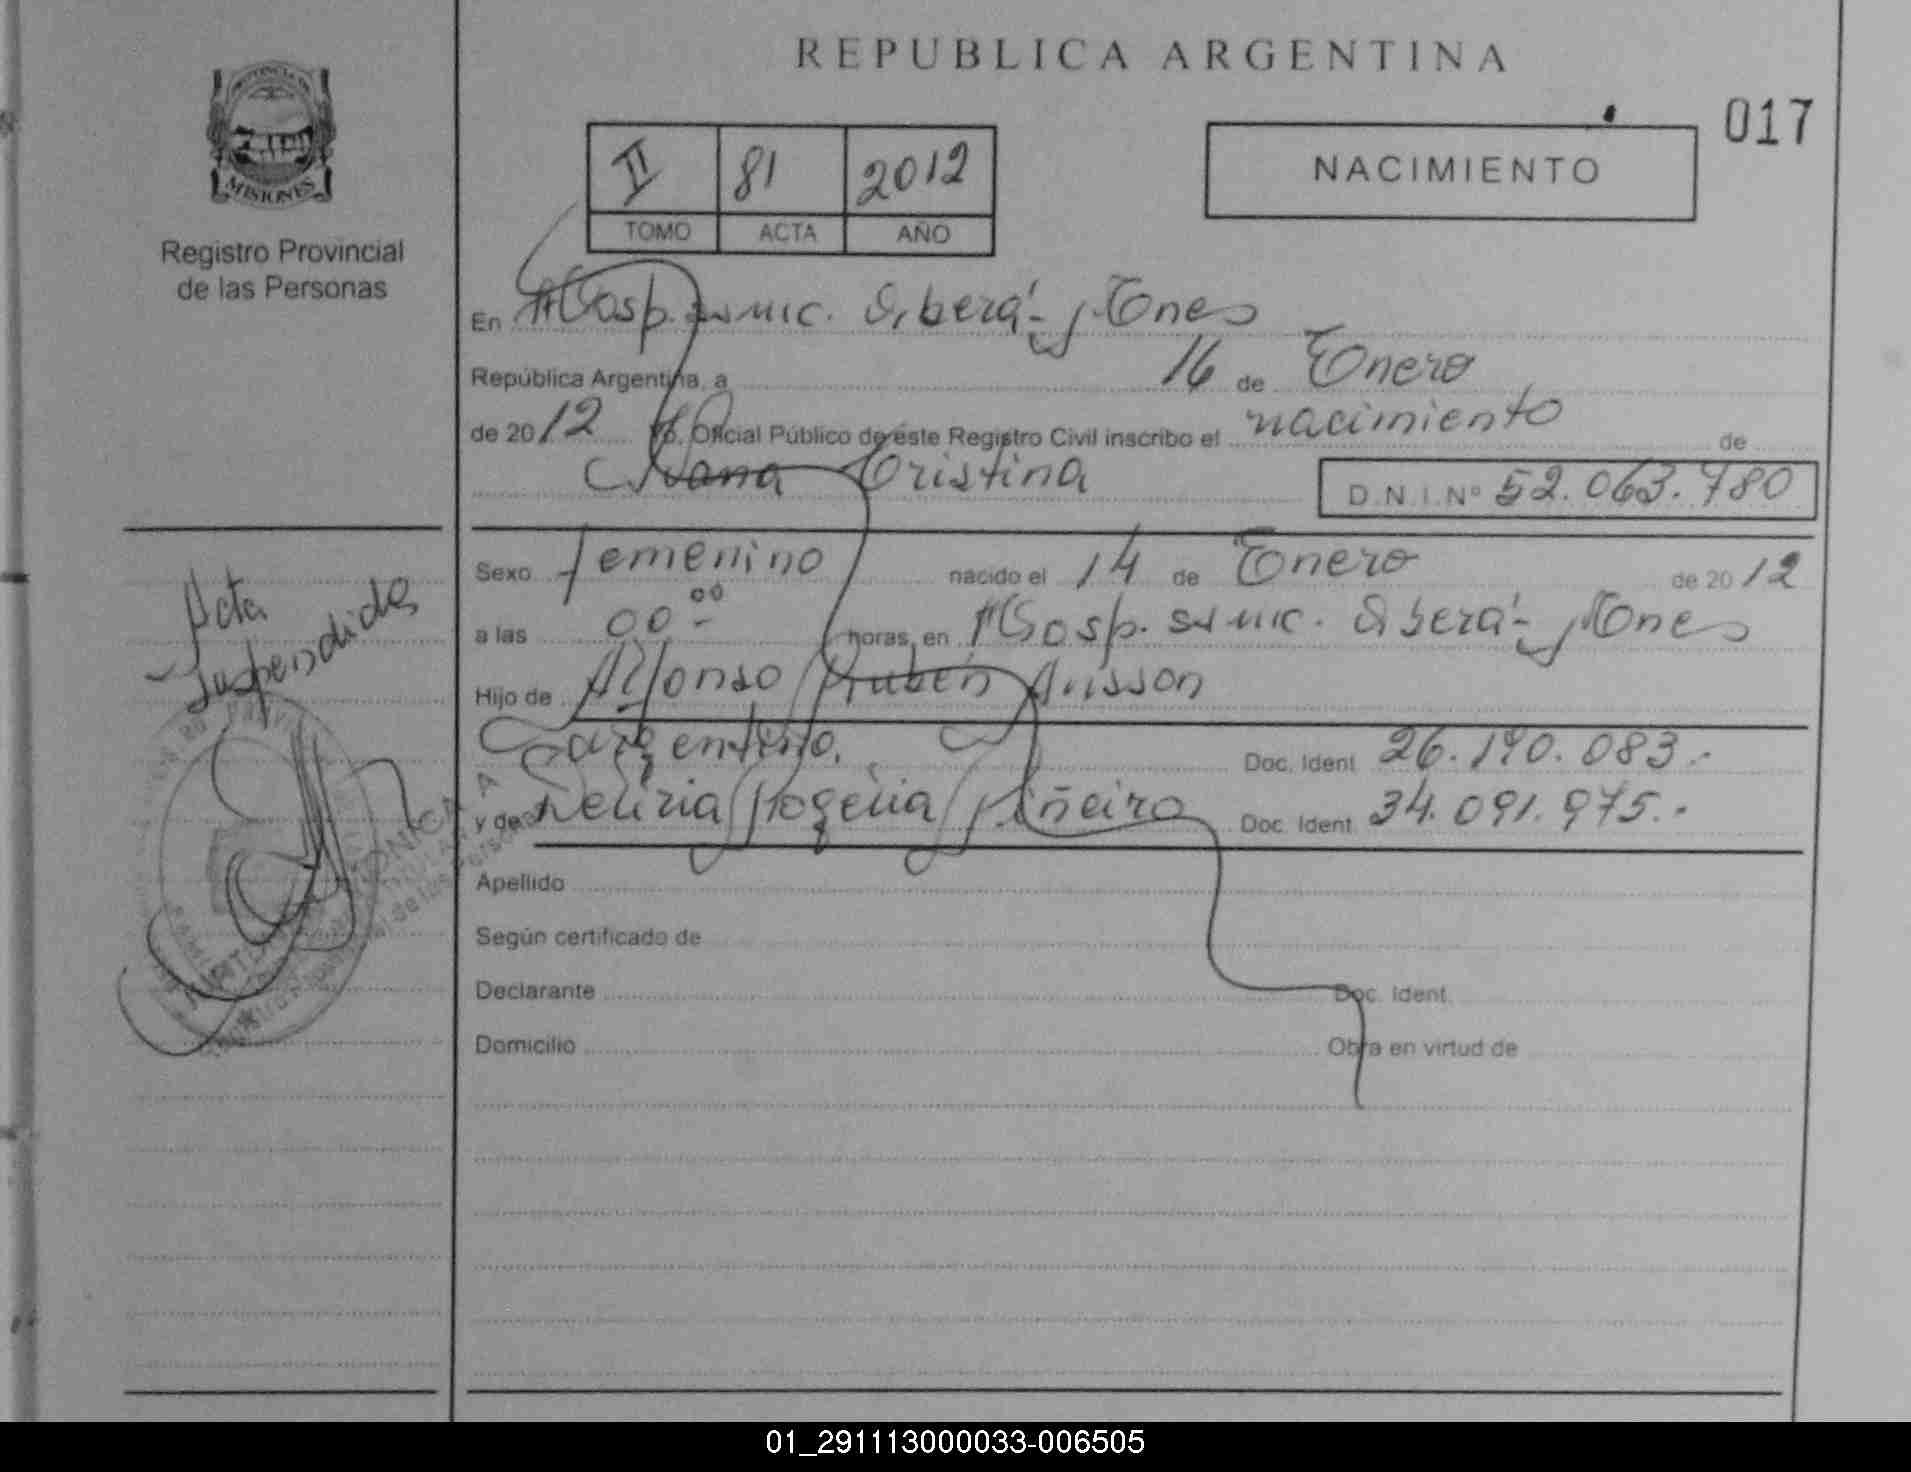 REPUBLICA ARGENTINA
017
PROVINCIA DE
MISIONES
Registro Provincial
de las Personas
II 81 2012
TOMO ACTA AÑO
NACIMIENTO
En Hosp. Oberá - Mnes
República Argentina, a 16 de Enero
de 2012 Yo, Oficial Público de este Registro Civil inscribo el nacimiento de
Cristina
D.N.I.Nº 52.063.780
Sexo femenino nacido el 14 de Enero de 2012
a las 00 00 - horas, en Hosp. Oberá - Mnes
Hijo de Alfonso Rubén
Argentino. Doc. Ident 26.190.083.-
y de Rogelia Piñeiro Doc. Ident. 34.091.975.-
Apellido
Según certificado de
Declarante Doc. Ident.
Domicilio Obra en virtud de
Acta
Suspendida
01_291113000033-006505